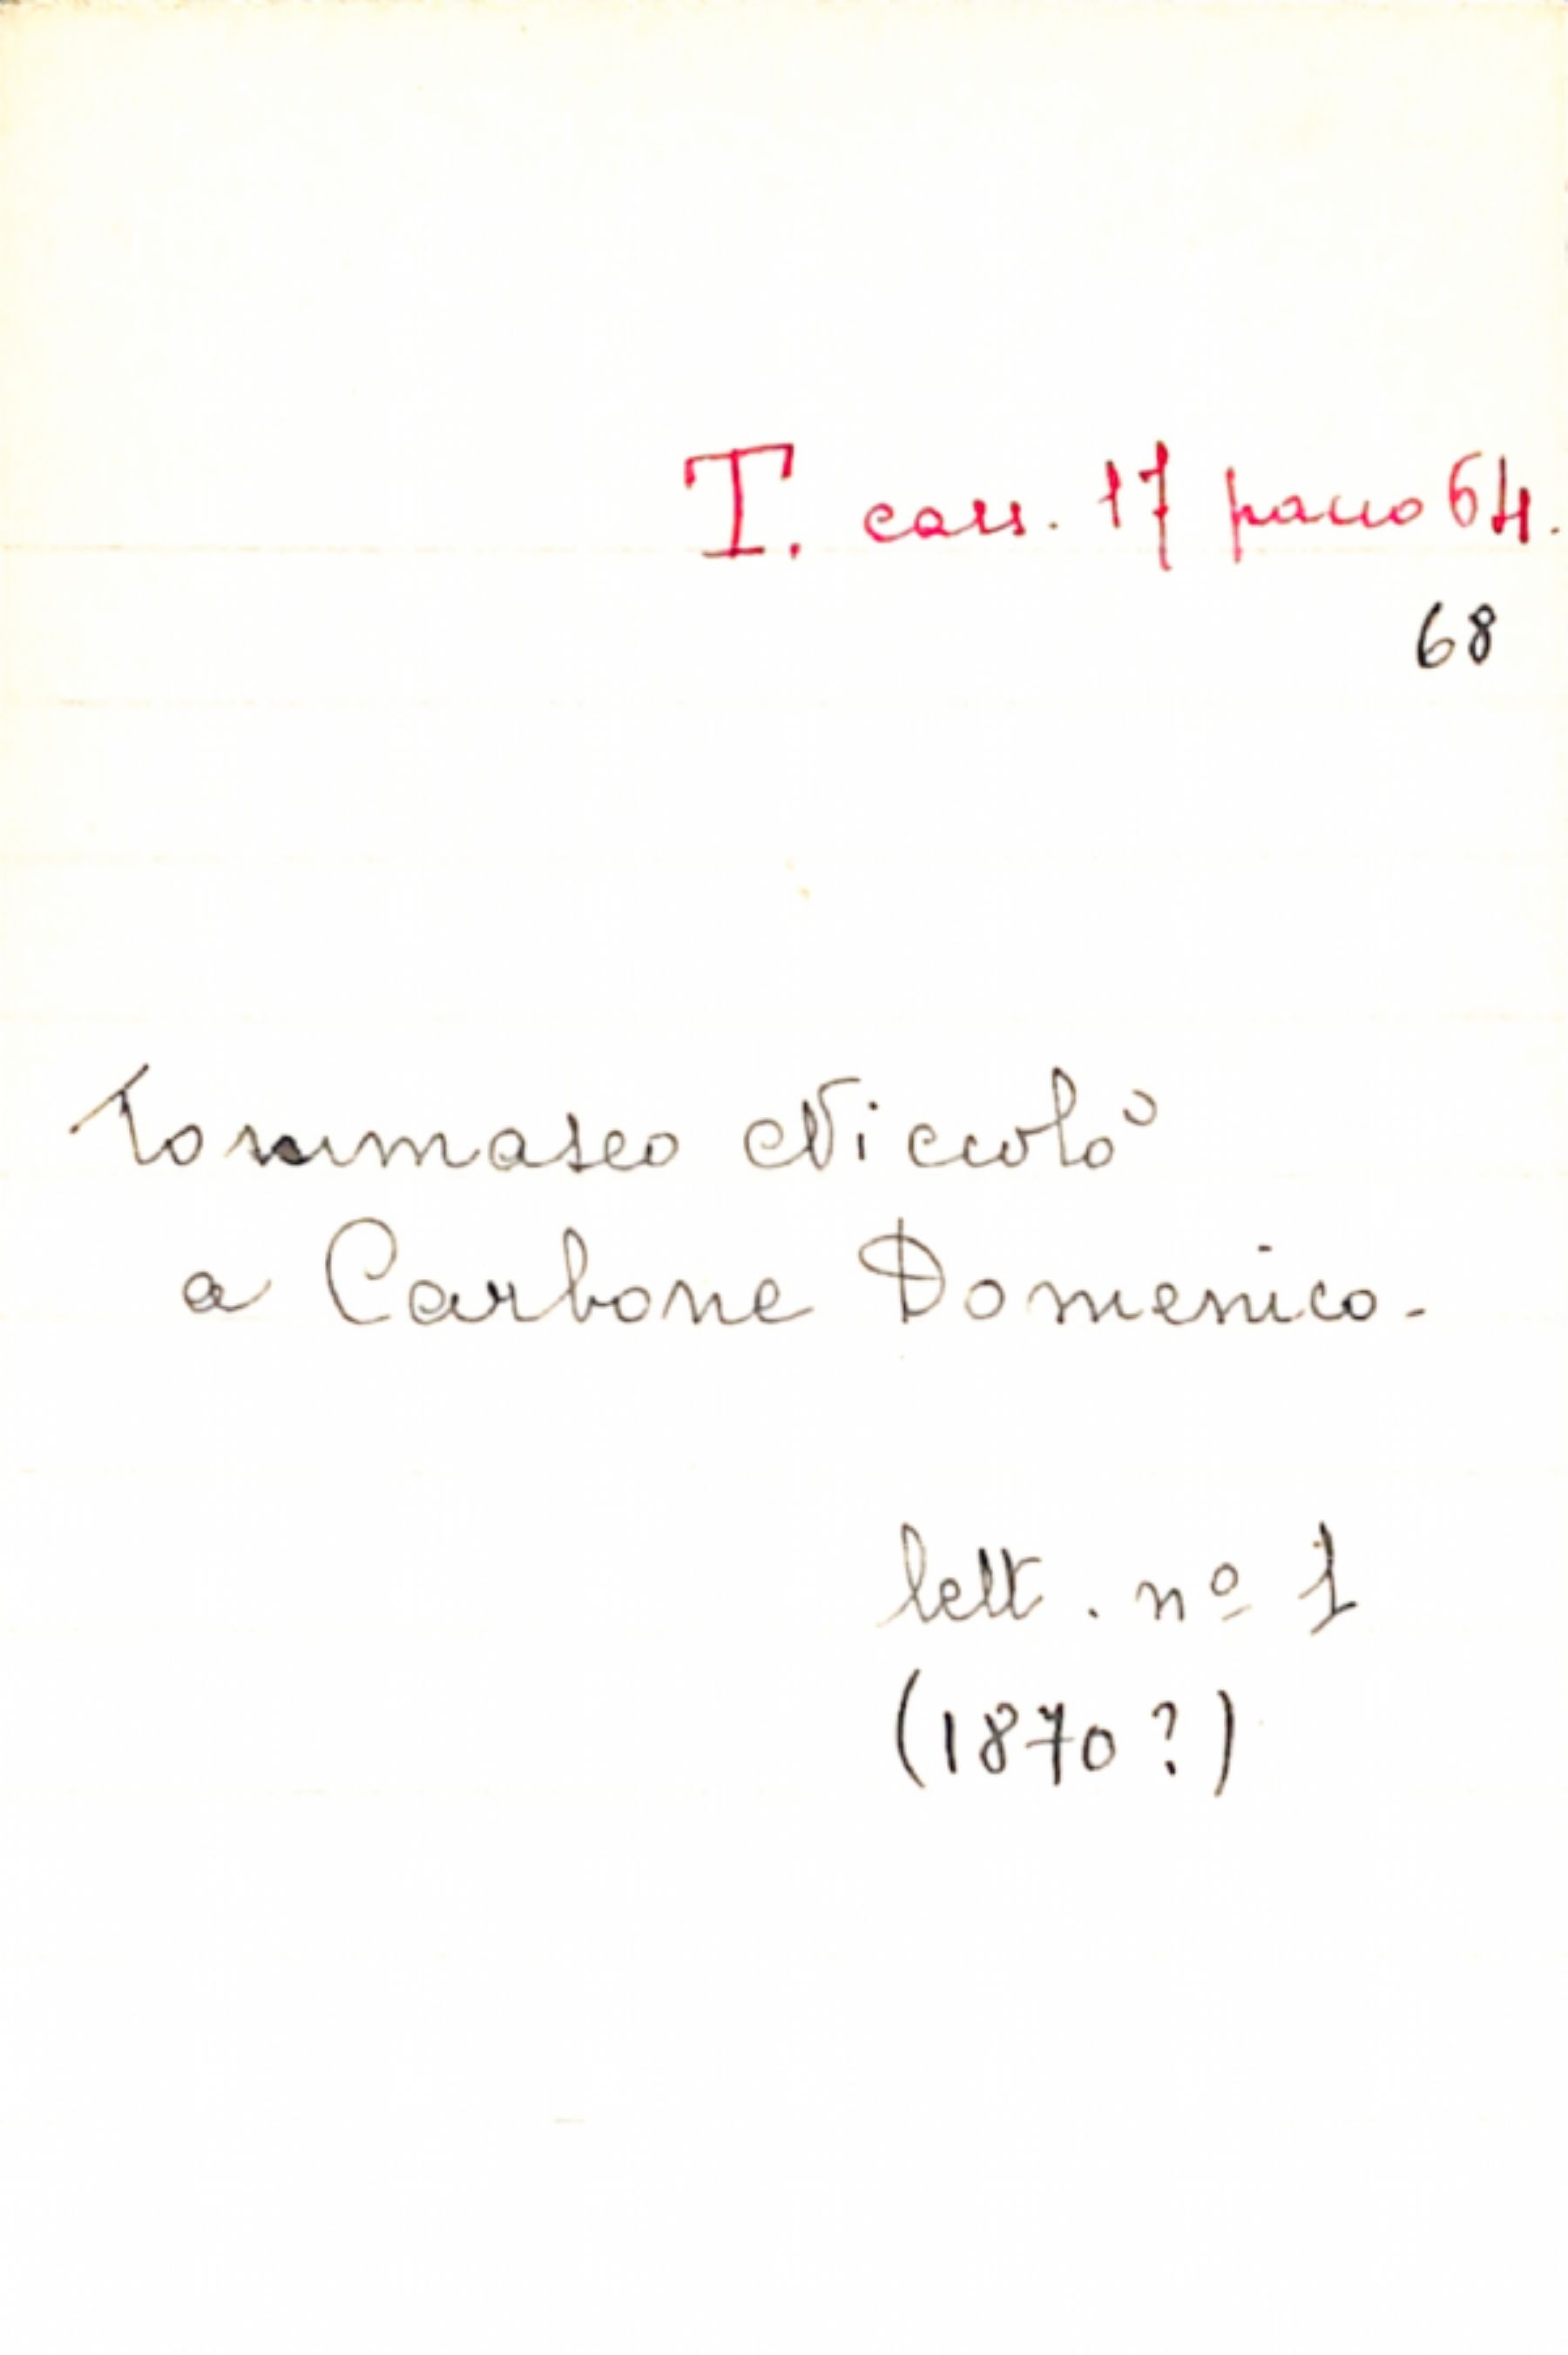 T. cass. 17 pacco 64.
68
Tommaseo Niccolò
a Carbone Domenico.
lett. nº 1
(1870?)